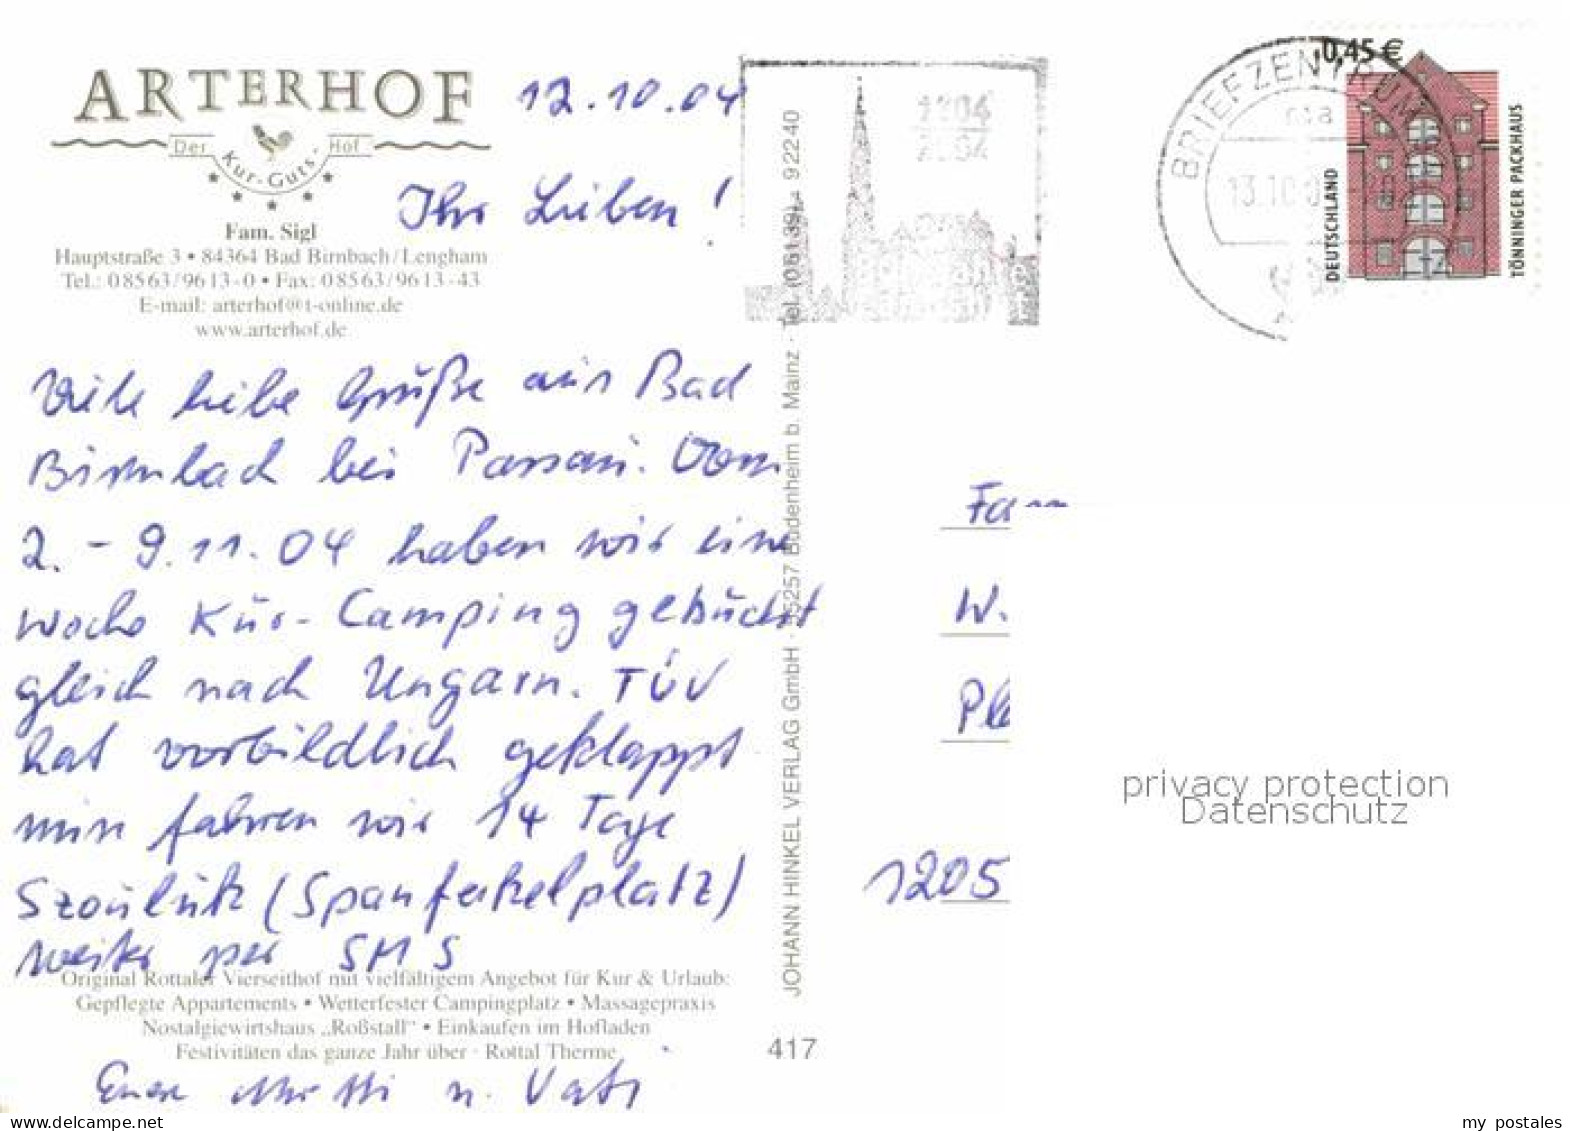 ARTERHOF
Der Kur-Guts-Hof
Fam. Sigl
Hauptstraße 3 • 84364 Bad Birnbach/Lengham
Tel.: 08563/9613-0 • Fax: 08563/9613-43
E-mail: arterhof@t-online.de
www.arterhof.de
12.10.04
Ihr Lieben!
Viele liebe Grüße aus Bad
Birnbach bei Passau. Vom
2. - 9.11.04 haben wir eine
Woche Kur-Camping gebucht
gleich nach Ungarn. TÜV
hat vorbildlich geklappt
nun fahren wir 14 Tage
(Spanferkelplatz)
weiter per SMS
Original Rottaler Vierseithof mit vielfältigem Angebot für Kur & Urlaub:
Gepflegte Appartements • Wetterfester Campingplatz • Massagepraxis
Nostalgiewirtshaus „Roßstall" • Einkaufen im Hofladen
Festivitäten das ganze Jahr über · Rottal Therme
Eure Mutti u. Vati
JOHANN HINKEL VERLAG GmbH · 55257 Budenheim b. Mainz · Tel. (06139) 92240
417
1204
2004
BRIEFZENTRUM
13.10.0
0,45 €
DEUTSCHLAND
TÖNNINGER PACKHAUS
Fam
W.
Ple
1205
privacy protection
Datenschutz
www.delcampe.net
my_postales